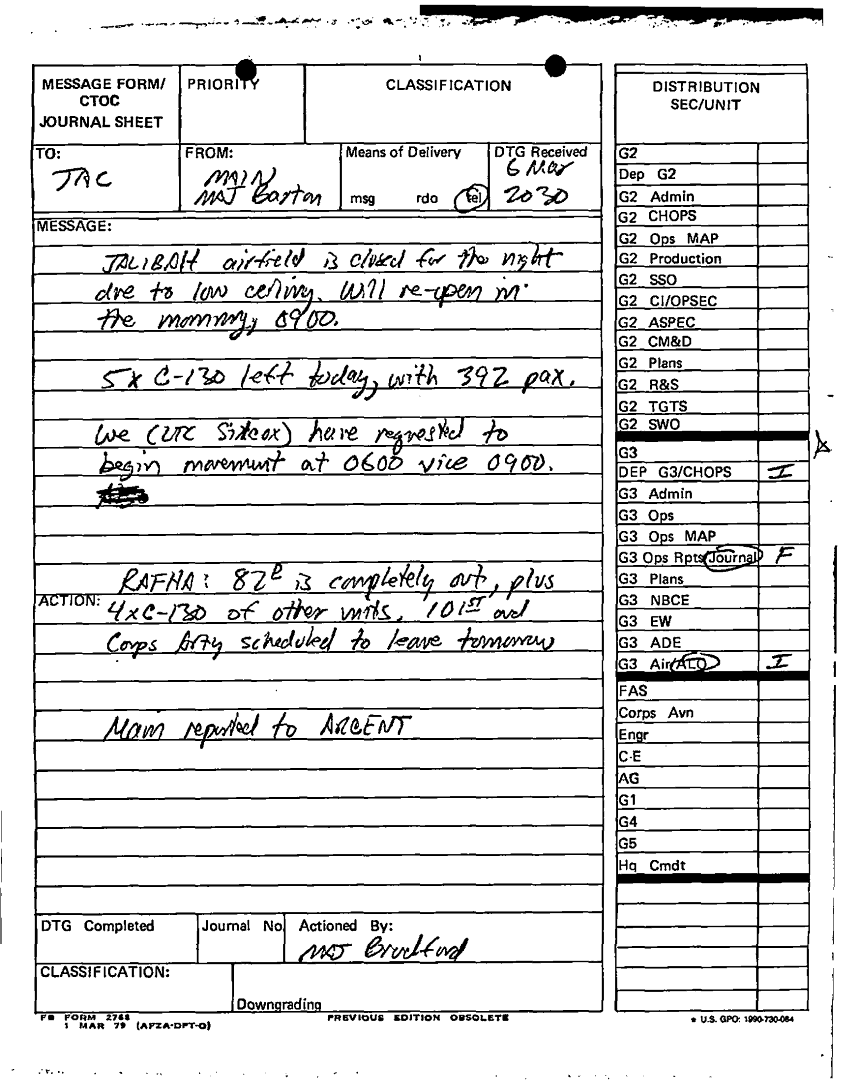 MESSAGE FORM/
CTOC
JOURNAL SHEET
PRIORITY
CLASSIFICATION
TO:
TAC
FROM:
MAIN
MAJ Barton
Means of Delivery
msg rdo tel
DTG Received
6 Mar
2030
MESSAGE:
JALIBAH airfield is closed for the night
due to low ceiling. Will re-open in
the morning, 0900.
5 x C-130 left today, with 392 pax.
We (LTC Sidcox) have requested to
begin movement at 0600 vice 0900.
RAFHA: 82D is completely out, plus
ACTION: 4xC-130 of other units. 101ST and
Corps Arty scheduled to leave tomorrow
Main reported to ARCENT
DTG Completed
Journal No
Actioned By:
MAJ Bradford
CLASSIFICATION:
Downgrading
FB FORM 2768
1 MAR 79 (AFZA-DPT-O)
PREVIOUS EDITION OBSOLETE
DISTRIBUTION
SEC/UNIT
G2
Dep G2
G2 Admin
G2 CHOPS
G2 Ops MAP
G2 Production
G2 SSO
G2 CI/OPSEC
G2 ASPEC
G2 CM&D
G2 Plans
G2 R&S
G2 TGTS
G2 SWO
G3
DEP G3/CHOPS I
G3 Admin
G3 Ops
G3 Ops MAP
G3 Ops Rpts Journal F
G3 Plans
G3 NBCE
G3 EW
G3 ADE
G3 Air/ALO I
FAS
Corps Avn
Engr
C-E
AG
G1
G4
G5
Hq Cmdt
* U.S. GPO: 1990-730-064